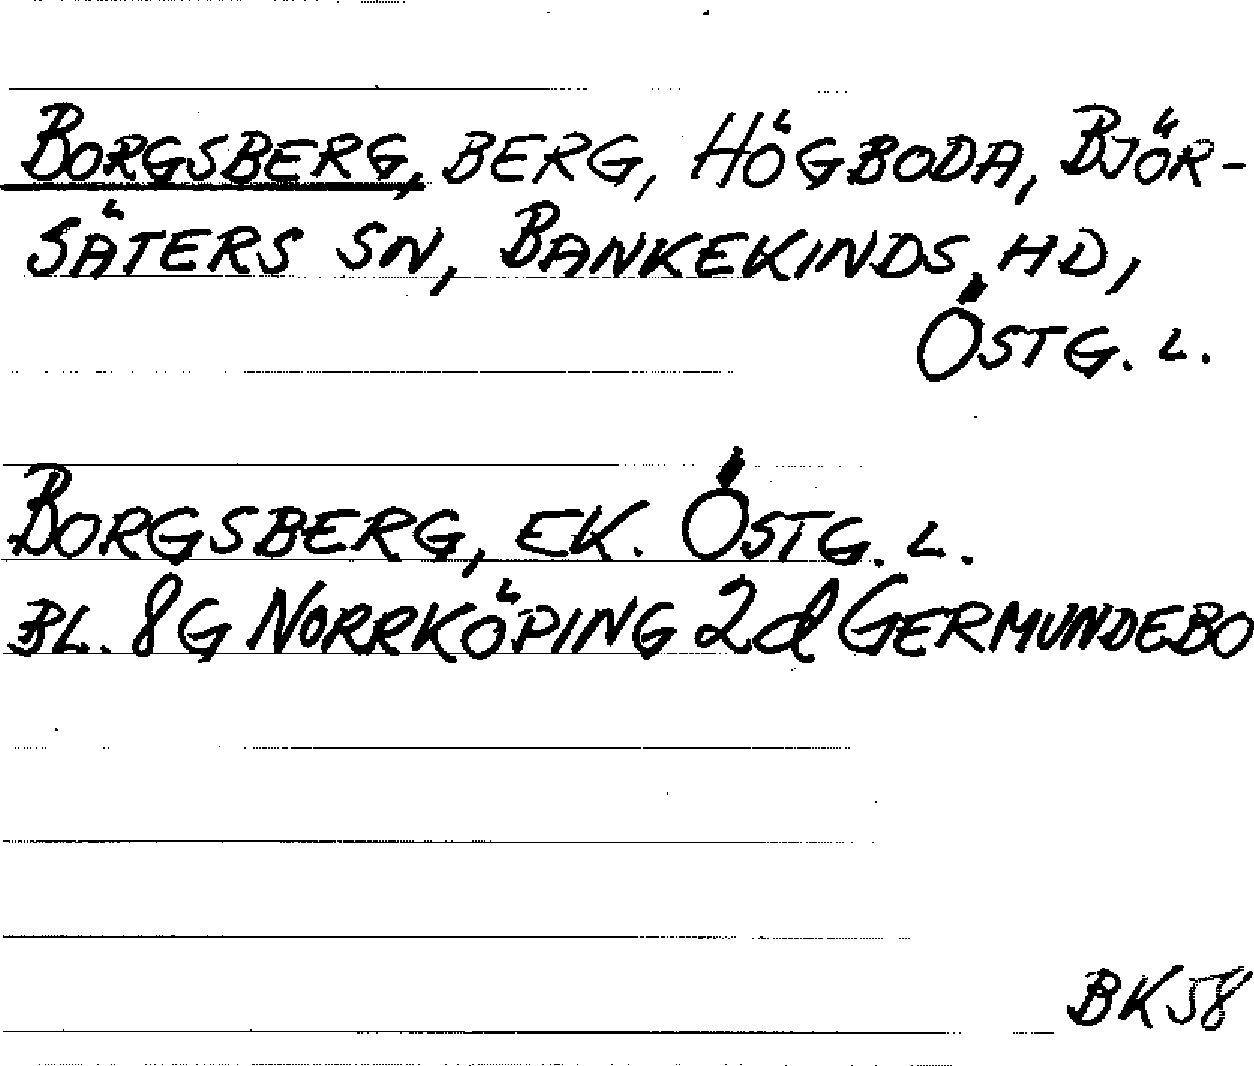 BORGSBERG, BERG, HÖGBODA, BJÖR-
SÄTERS SN, BANKEKINDS HD,
ÖSTG. L.
BORGSBERG, EK. ÖSTG. L.
BL. 8G NORRKÖPING 2d GERMUNDEBO
BK58